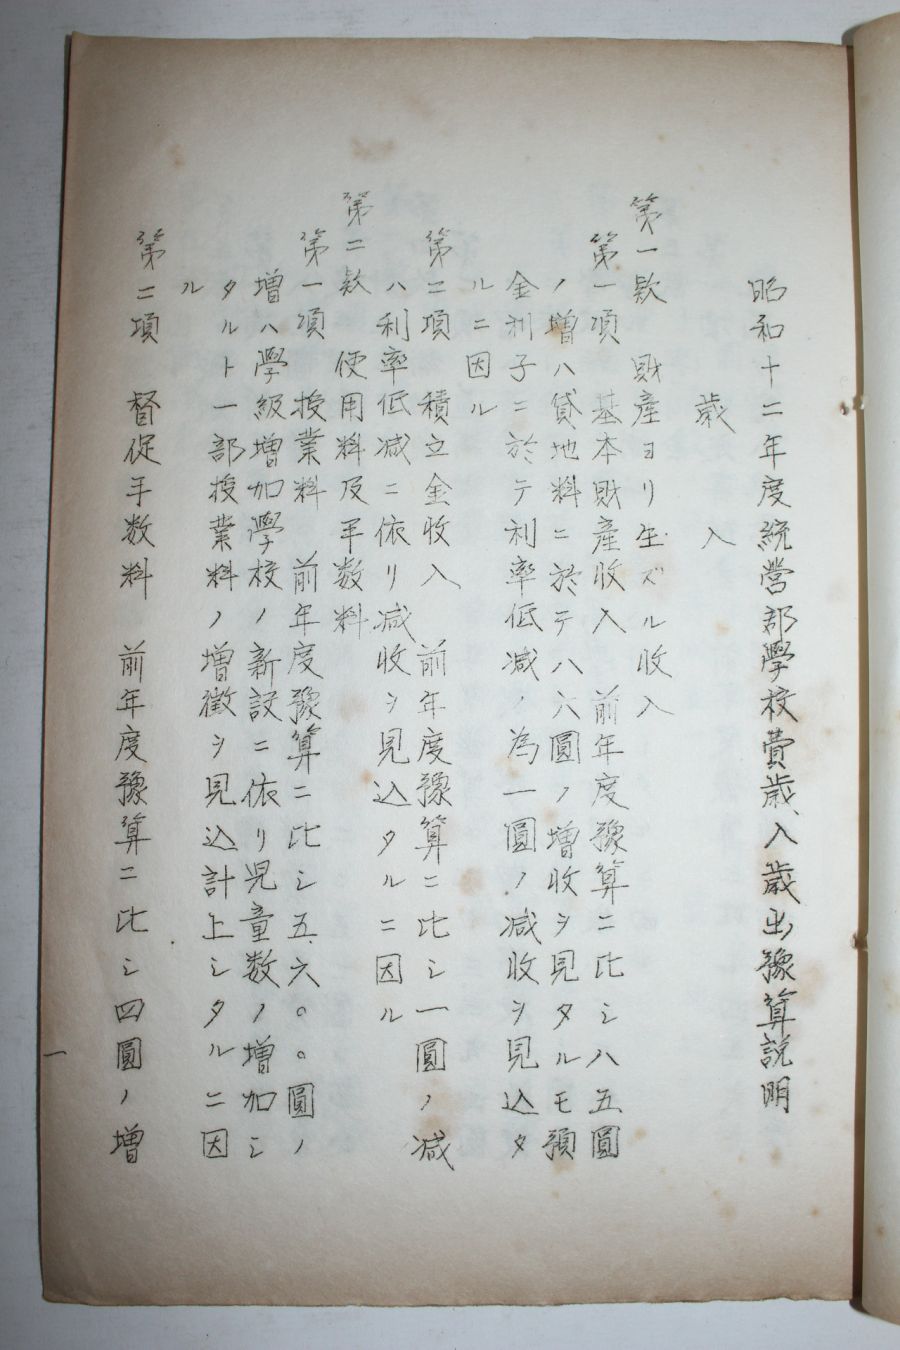 昭和十二年度統営部學校費歳入歳出豫算説明
歳入
第一款　財産ヨリ生ズル收入
第一項　基本財産收入　前年度豫算ニ比シ八五圓
ノ増ハ貸地料ニ於テ八六圓ノ増收ヲ見タルモ預
金利子ニ於テ利率低減ノ為一圓ノ減收ヲ見込タ
ルニ因ル
第二項　積立金收入　前年度豫算ニ比シ一圓ノ減
ハ利率低減ニ依リ減收ヲ見込タルニ因ル
第二款　使用料及手数料
第一項　授業料　前年度豫算ニ比シ五六〇〇圓ノ
増ハ學級増加學校ノ新設ニ依リ児童数ノ増加シ
タルト一部授業料ノ増徴ヲ見込計上シタルニ因
ル
第二項　督促手数料　前年度豫算ニ比シ四圓ノ増
一